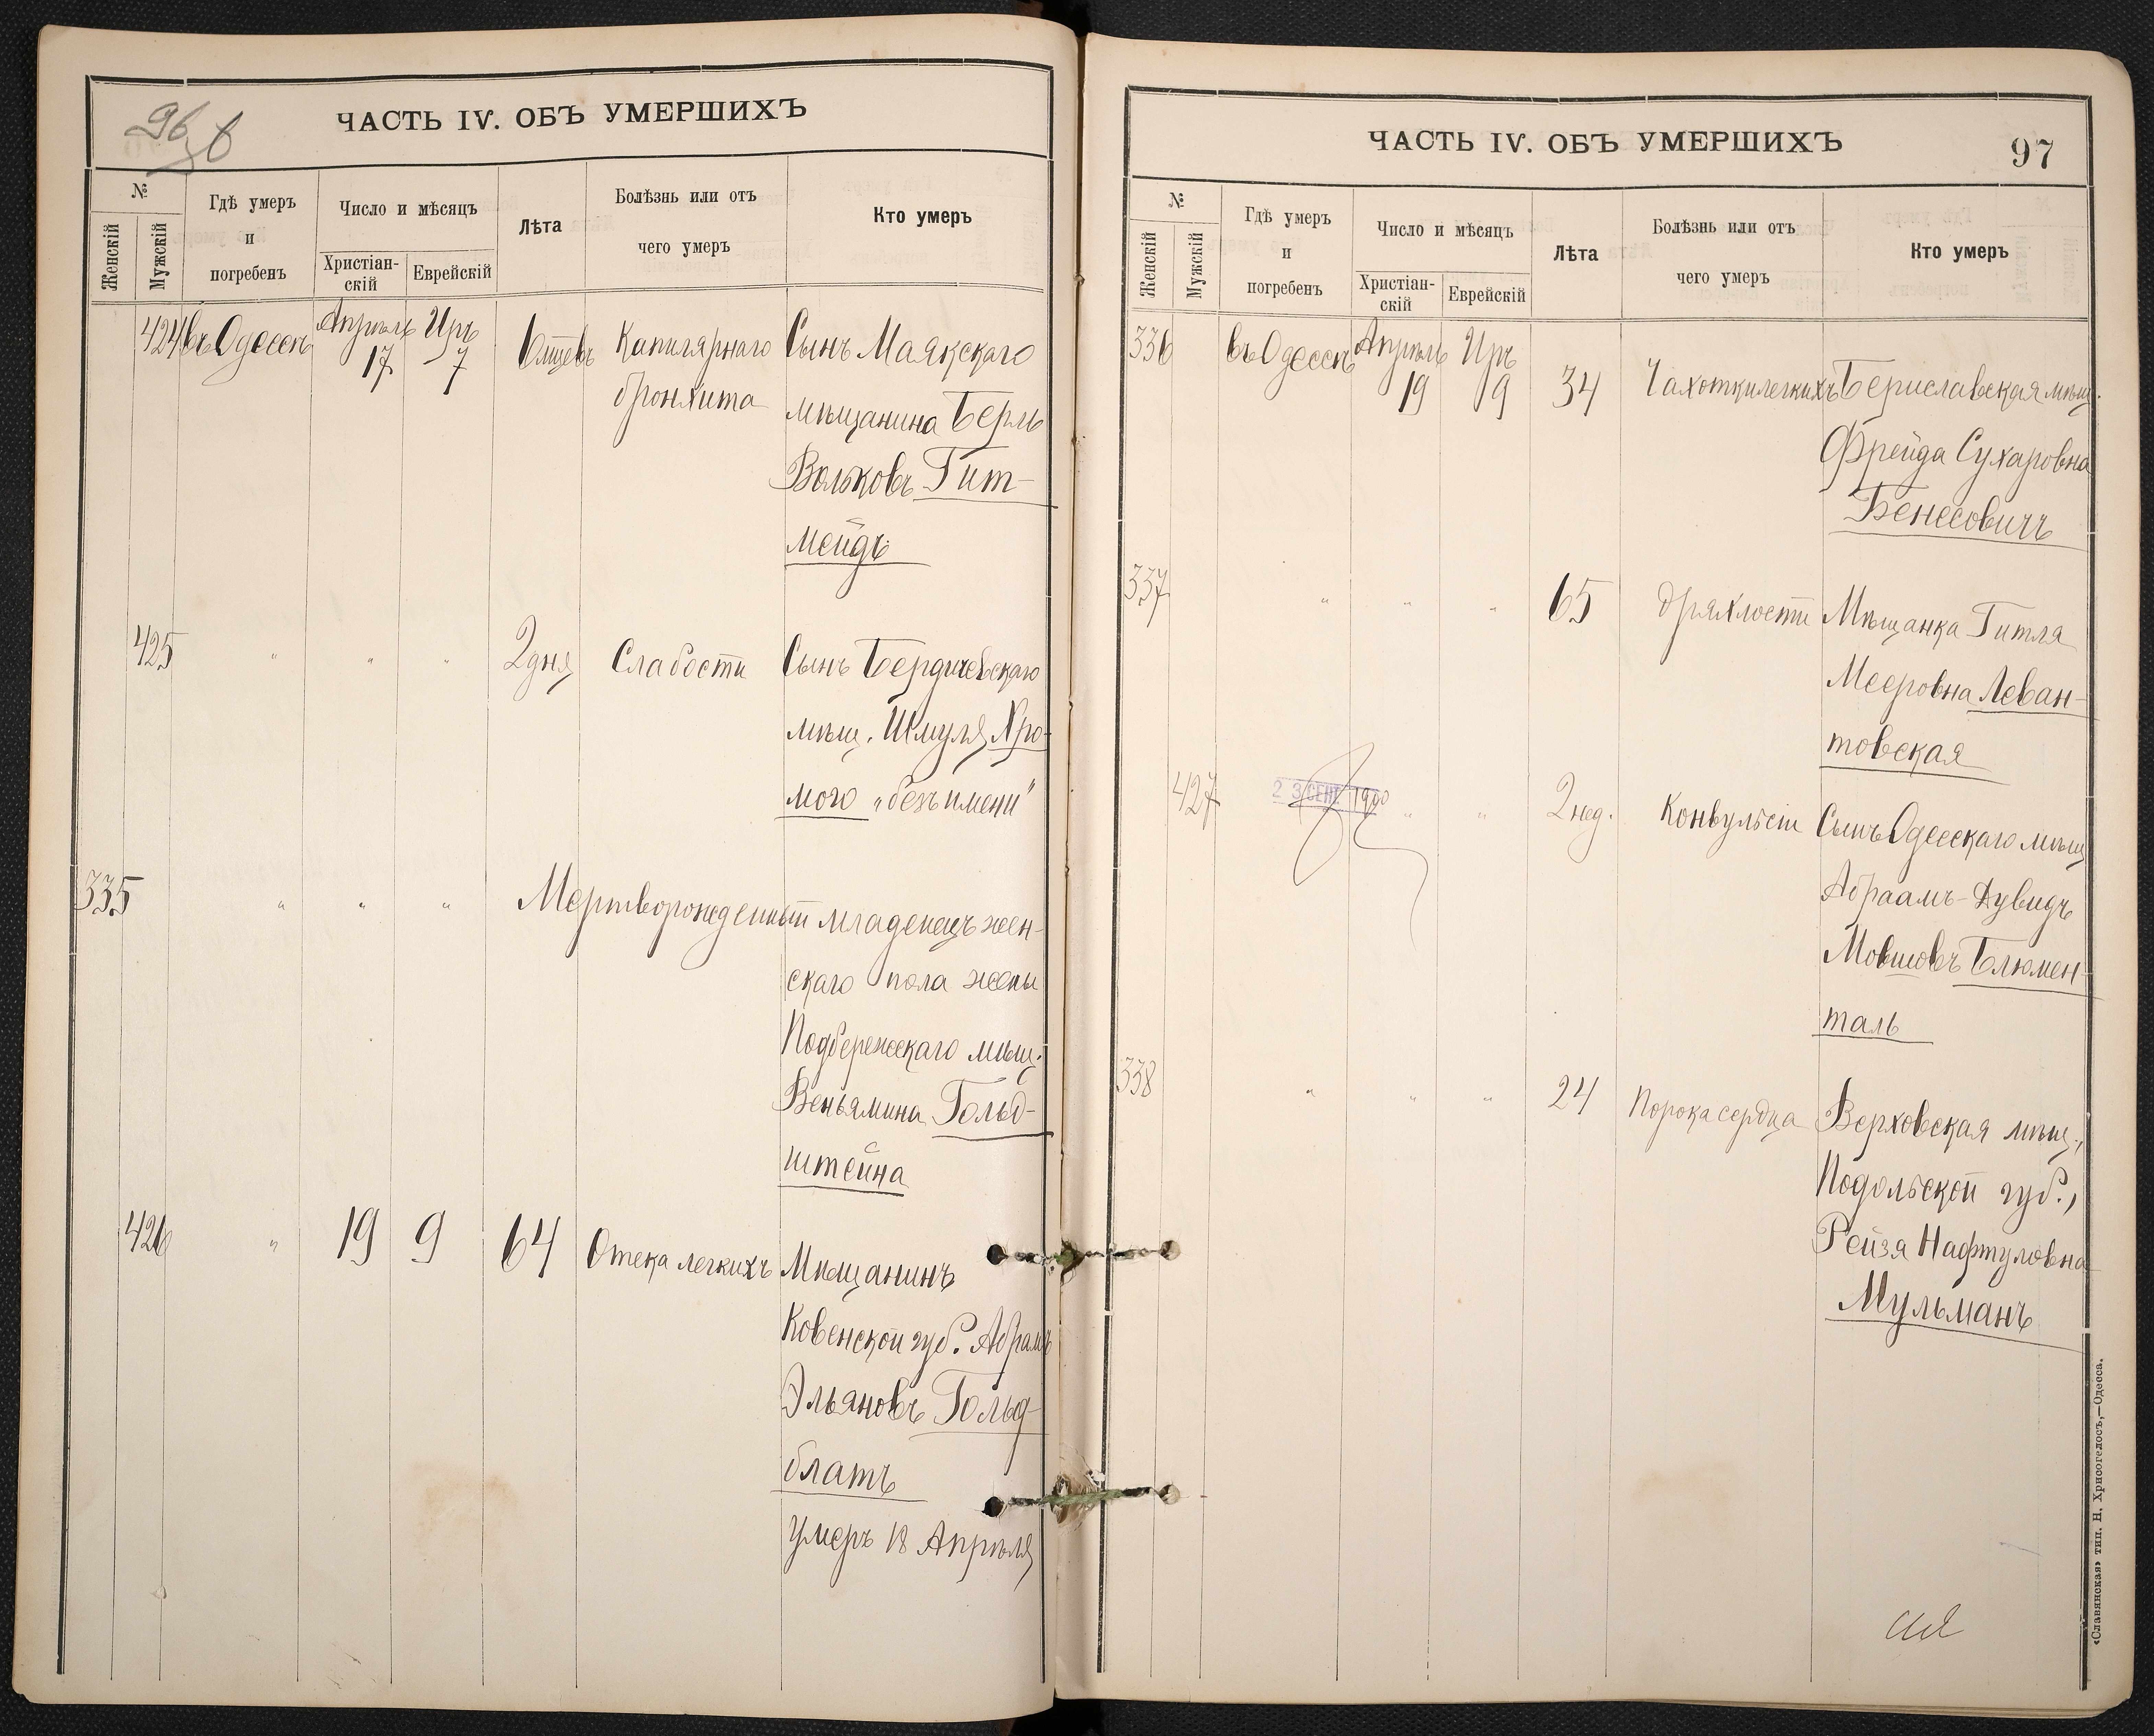 96 об
ЧАСТЬ IV. ОБЪ УМЕРШИХЪ
№
Женскій
Мужскій
Гдѣ умеръ
и
погребенъ
Число и мѣсяцъ
Христіан-
скій
Еврейскій
Лѣта
Болѣзнь или отъ
чего умеръ
Кто умеръ
424 въ Одессѣ Апрѣль 17 Иръ 7 6 мцевъ Капилярнаго Сынъ Маякскаго
бронхита мѣщанина Берль
Вольковъ Гит-
мейдъ
425 " " " 2 дня Слабости Сынъ Бердичевскаго
мѣщ. Шмуля Хро-
мого „безъ имени"
335 " " " Мертворожденный младенецъ жен-
скаго пола жены
Подбережскаго мѣщ.
Веньямина Гольд-
штейна
426 " 19 9 64 Отека легкихъ Мѣщанинъ
Ковенской губ. Абрамъ
Эльяновъ Гольд-
блатъ
умеръ 18 Апрѣля
ЧАСТЬ IV. ОБЪ УМЕРШИХЪ
97
№
Женскій
Мужскій
Гдѣ умеръ
и
погребенъ
Число и мѣсяцъ
Христіан-
скій
Еврейскій
Лѣта
Болѣзнь или отъ
чего умеръ
Кто умеръ
336 въ Одессѣ Апрѣль 19 Иръ 9 34 Чахотки легкихъ Бериславская мѣщ.
Фрейда Сухаровна
Бенесовичъ
337 " " " 65 дряхлости Мѣщанка Гитля
Мееровна Леван-
товская
427 23 СЕН. 1900 " " 2 нед. Конвульсіи Сынъ Одесскаго мѣщ
Абраамъ-Дувидъ
Мовшовъ Блюмен-
таль
338 " " " 24 Порока сердца Верховская мѣщ.,
Подольской губ.,
Рейзя Нафтуловна
Мульманъ
«Славянская» тип. Н. Хрисогелосъ,—Одесса.